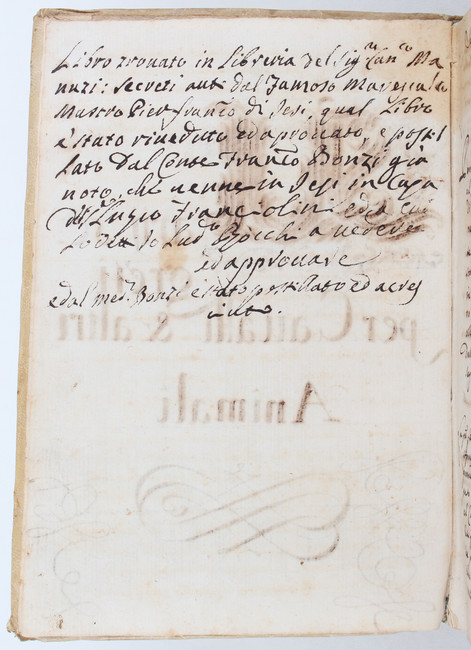 Libro trouato in Libreria del Sig.r Can.co Ma
nuzi: Secreti auti dal famoso Marescalco
Mastro Pier franc.o di Jesi, qual Libro
è stato riueduto ed aprouato, e postil
lato Dal Conte Franc.o Bonzi già
noto, che uenne in Jesi in Casa
Franciolini ed a cui
Lo Dett' Io Lud.o a uedere
ed approuare
e dal med.o Bonzi è stato postillato ed acres
iuto.
per Caualli & altri
Animali